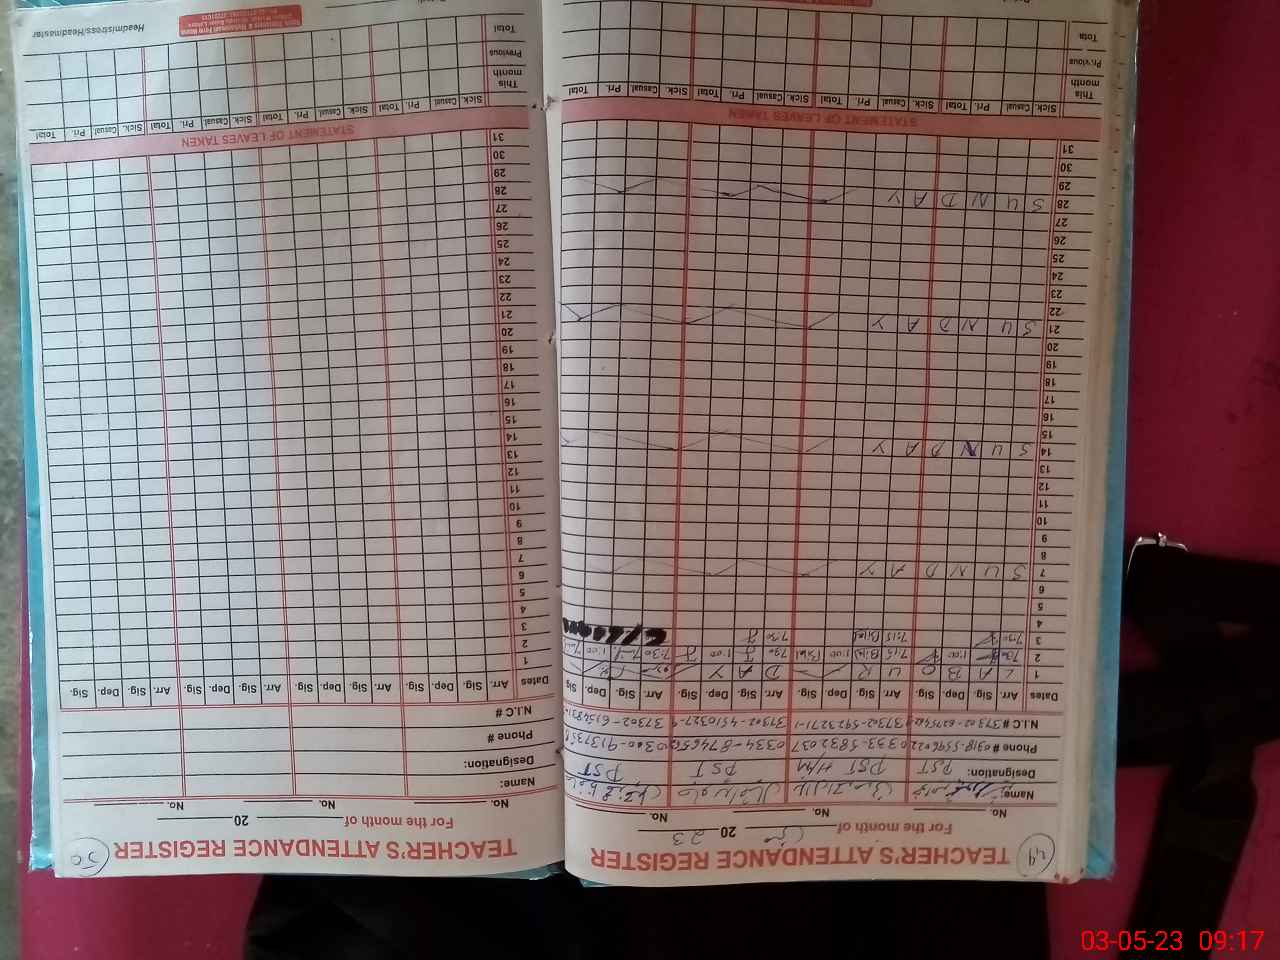 49
TEACHER'S ATTENDANCE REGISTER
For the month of مئی 2023
No. No. No. No.
Name:
Designation: PST PST H/M PST PST
Phone # 0333-5832037
N.I.C #
Dates Arr. Sig. Dep. Sig. Arr. Sig. Dep. Sig. Arr. Sig. Dep. Sig. Arr. Sig. Dep. Sig.
1 L A B O U R D A Y
2 7:30 1:00 7:15 Bilal 1:00 Bilal 7:30 1:00 7:30 1:00
3 7:30 7:15 Bilal 7:30
4
5
6
7 S U N D A Y
8
9
10
11
12
13
14 S U N D A Y
15
16
17
18
19
20
21 S U N D A Y
22
23
24
25
26
27
28 S U N D A Y
29
30
31
STATEMENT OF LEAVES TAKEN
Sick. Casual. Pri. Total Sick. Casual. Pri. Total Sick. Casual. Pri. Total Sick. Casual. Pri. Total
This month
Previous
Total
50
TEACHER'S ATTENDANCE REGISTER
For the month of 20
No. No. No. No.
Name:
Designation:
Phone #
N.I.C #
Dates Arr. Sig. Dep. Sig. Arr. Sig. Dep. Sig. Arr. Sig. Dep. Sig. Arr. Sig. Dep. Sig.
1
2
3
4
5
6
7
8
9
10
11
12
13
14
15
16
17
18
19
20
21
22
23
24
25
26
27
28
29
30
31
STATEMENT OF LEAVES TAKEN
Sick. Casual. Pri. Total Sick. Casual. Pri. Total Sick. Casual. Pri. Total Sick. Casual. Pri. Total
This month
Previous
Total
Headmistress/Headmaster
03-05-23 09:17